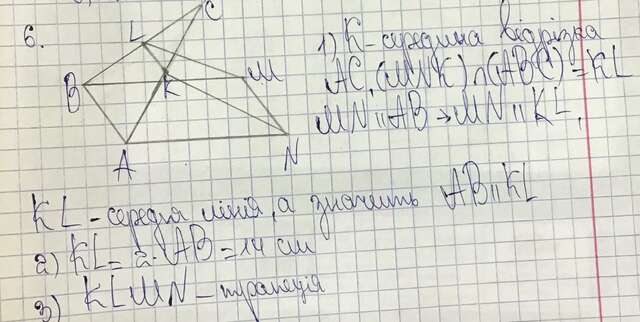 6.
C
L
B
K
M
A
N
1) K - середина відрізка
AC, (MNK) ∩ (ABC) = KL
MN || AB → MN || KL,
KL - середня лінія, а значить AB || KL
2) KL = 2 · AB = 14 см
3) KLMN - трапеція